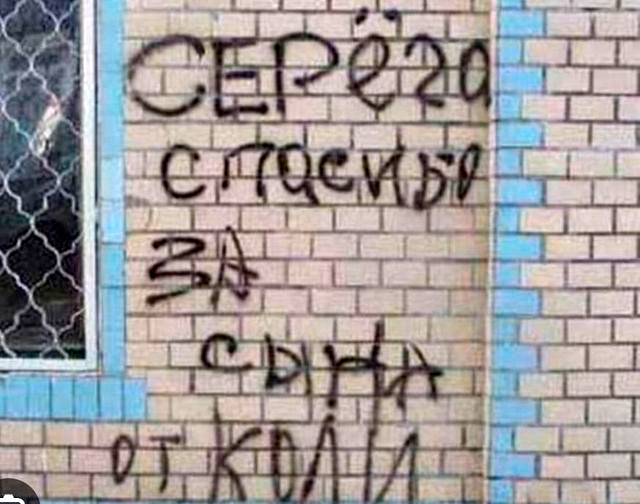 СЕРЁГА
СПАСИБО
ЗА
СЫНА
ОТ КОЛИ